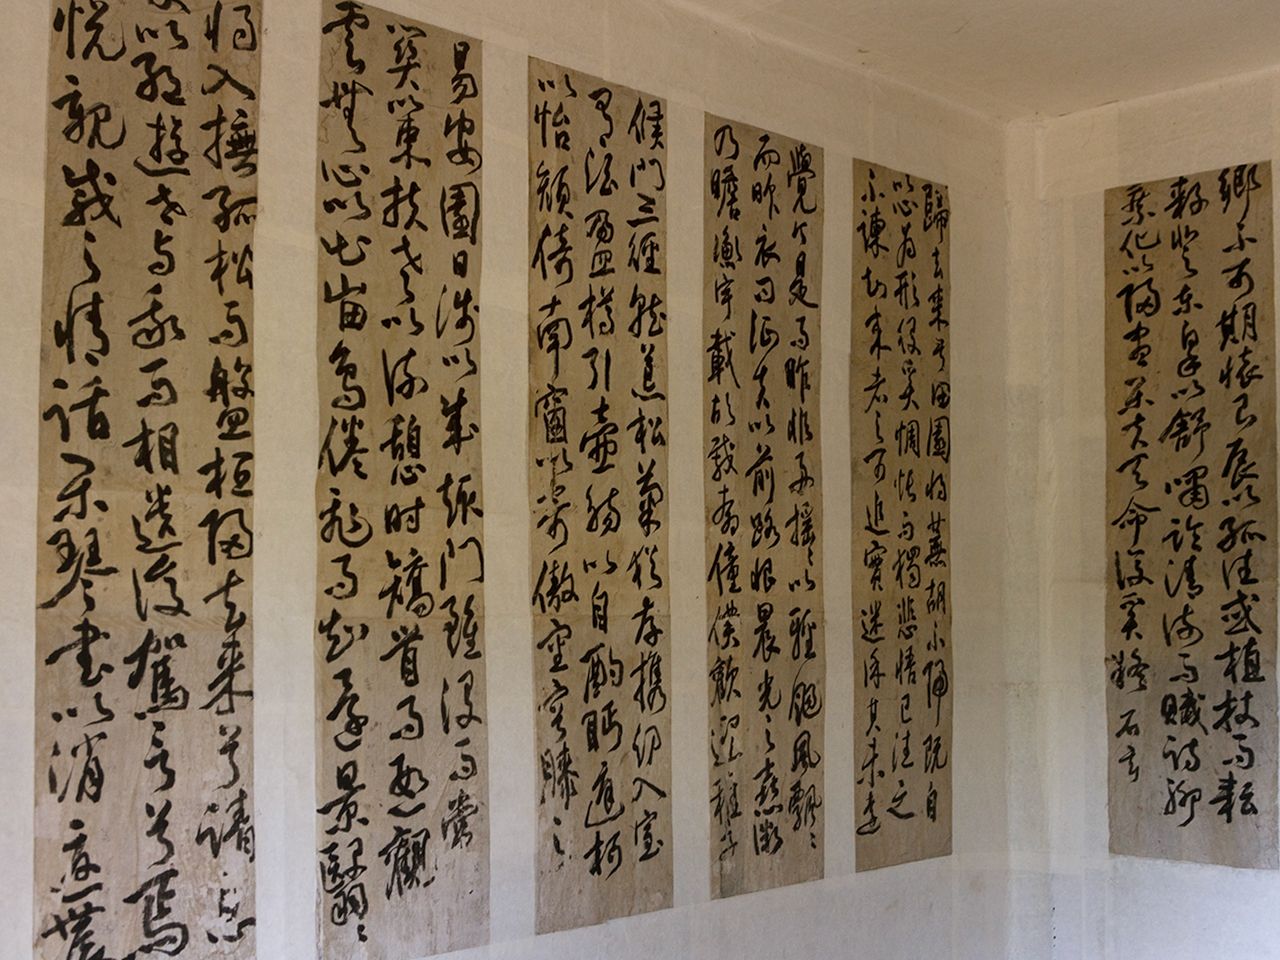 歸去來兮田園將蕪胡不歸既自
以心爲形役奚惆悵而獨悲悟已往之
不諫知來者之可追實迷途其未遠
覺今是而昨非舟搖〻以輕颺風飄〻
而吹衣問征夫以前路恨晨光之熹微
乃瞻衡宇載欣載奔僮僕歡迎稚子
候門三徑就荒松菊猶存攜幼入室
有酒盈樽引壺觴以自酌眄庭柯
以怡顏倚南窗以寄傲審容膝之
易安園日涉以成趣門雖設而常
關以策扶老以流憩時矯首而遐觀
雲無心以出岫鳥倦飛而知還景翳〻
將入撫孤松而盤桓歸去來兮請息
交以絕遊世與我而相遺復駕言兮焉
悅親戚之情話樂琴書以消憂農
鄉不可期懷良辰以孤往或植杖而耘
耔登東皋以舒嘯臨清流而賦詩聊
乘化以歸盡樂夫天命復奚疑 石